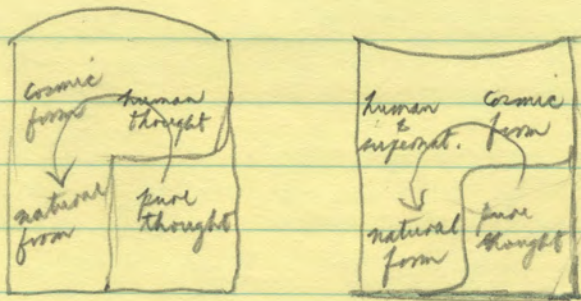 cosmic
form
human
thought
natural
from
pure
thought
human
&
supernat.
cosmic
form
natural
form
pure
thought